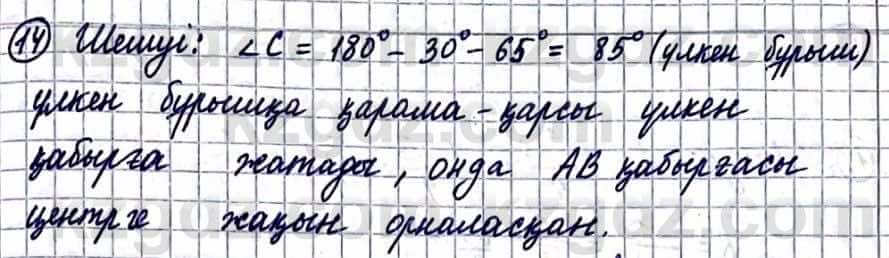 14 Шешуі: ∠C = 180° - 30° - 65° = 85° (үлкен бұрыш)
үлкен бұрышқа қарама-қарсы үлкен
қабырға жатады, онда AB қабырғасы
центрге жақын орналасқан.